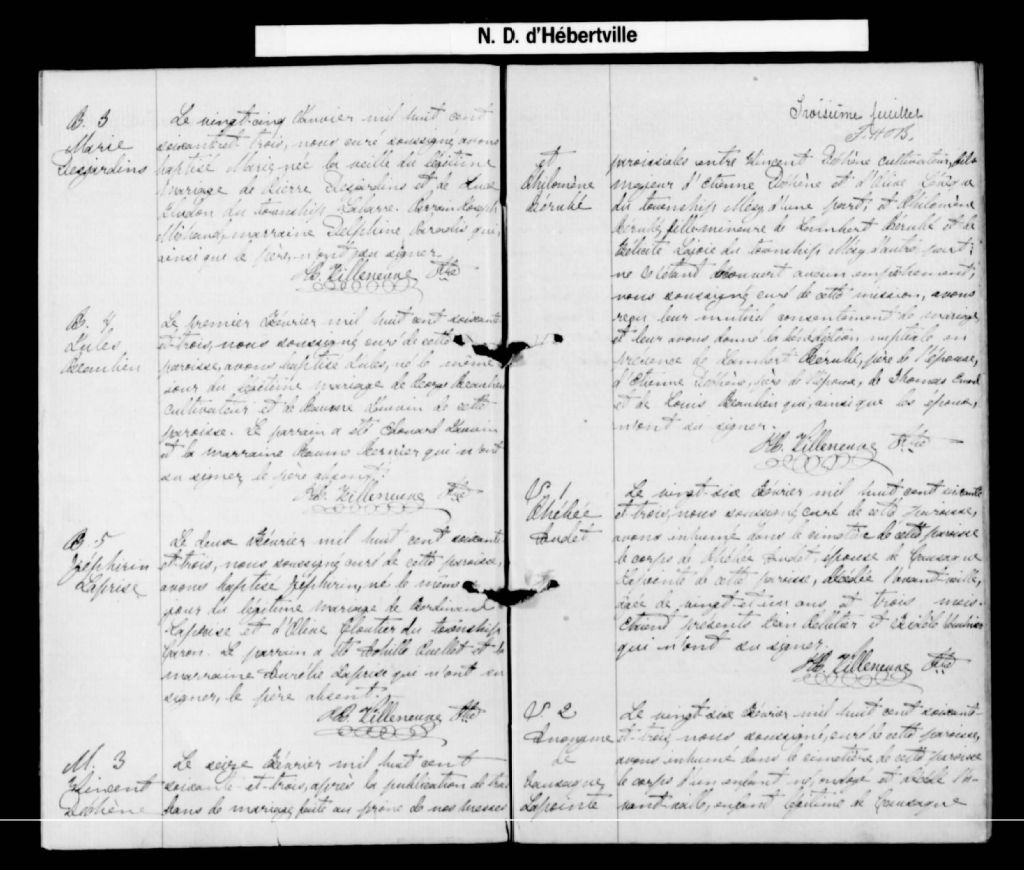 N. D. d'Hébertville
B. 3
Marie
Desjardins
Le vingt-cinq Janvier mil huit cent
soixante et trois, nous curé soussigné, avons
baptisé Marie, née la veille du légitime
mariage de Pierre Desjardins et de Luce
du township Labarre. Parrain Joseph
Michaud, marraine Delphine qui,
ainsi que le père, n'ont pu signer.
Villeneuve Ptre
B. 4
Jules
Beaulieu
Le premier Février mil huit cent soixante
et-trois, nous soussigné curé de cette
paroisse, avons baptisé Jules, né le même
jour du légitime mariage de George Beaulieu
cultivateur et de de cette
paroisse. Le parrain a été Edouard
et la marraine Bernier qui n'ont
su signer le père absent.
Villeneuve Ptre
B. 5
Zéphirin
Laprise
Le deux Février mil huit cent soixante
et-trois, nous soussigné curé de cette paroisse,
avons baptisé Zéphirin, né le même
jour du légitime mariage de Ferdinand
Laprise et d'Olive Cloutier du township
Caron. Le parrain a été Achille Ouellet et la
marraine Aurélie Laprise qui n'ont su
signer, le père absent.
Villeneuve Ptre
M. 3
Vincent
Dechène
Le seize Février mil huit cent
soixante-et-trois, après la publication de trois
bans de mariage faite au prône de nos messes
Troisième feuillet
et
Philomène
Bérubé
paroissiales entre Vincent Dechène cultivateur, fils
majeur d'Etienne Dechène et d'Olive
du township Mésy d'une part, et Philomène
Bérubé, fille mineure de Lambert Bérubé et de
Lajoie du township Mésy d'autre part;
ne s'étant découvert aucun empêchement,
nous soussigné curé de cette mission, avons
reçu leur mutuel consentement de mariage
et leur avons donné la bénédiction nuptiale en
présence de Lambert Bérubé, père de l'épouse,
d'Etienne Dechène, père de l'époux, de Thomas
et de Louis Beaulieu qui, ainsi que les époux,
n'ont su signer.
Villeneuve Ptre
S. 1
Phébée
Audet
Le vingt-six Février mil huit cent soixante
et-trois, nous soussigné, curé de cette paroisse,
avons inhumé dans le cimetière de cette paroisse
le corps de Phébée Audet épouse de
Lapointe de cette paroisse, décédée l'avant-veille,
âgée de vingt-et-un ans et trois mois.
Etaient présents Jean Pelletier et
qui n'ont su signer.
Villeneuve Ptre
S. 2
Anonyme
de
Lapointe
Le vingt-six Février mil huit cent soixante-
et-trois, nous soussigné, curé de cette paroisse,
avons inhumé dans le cimetière de cette paroisse
le corps d'un enfant né, ondoyé et décédé l'a-
vant-veille, enfant légitime de